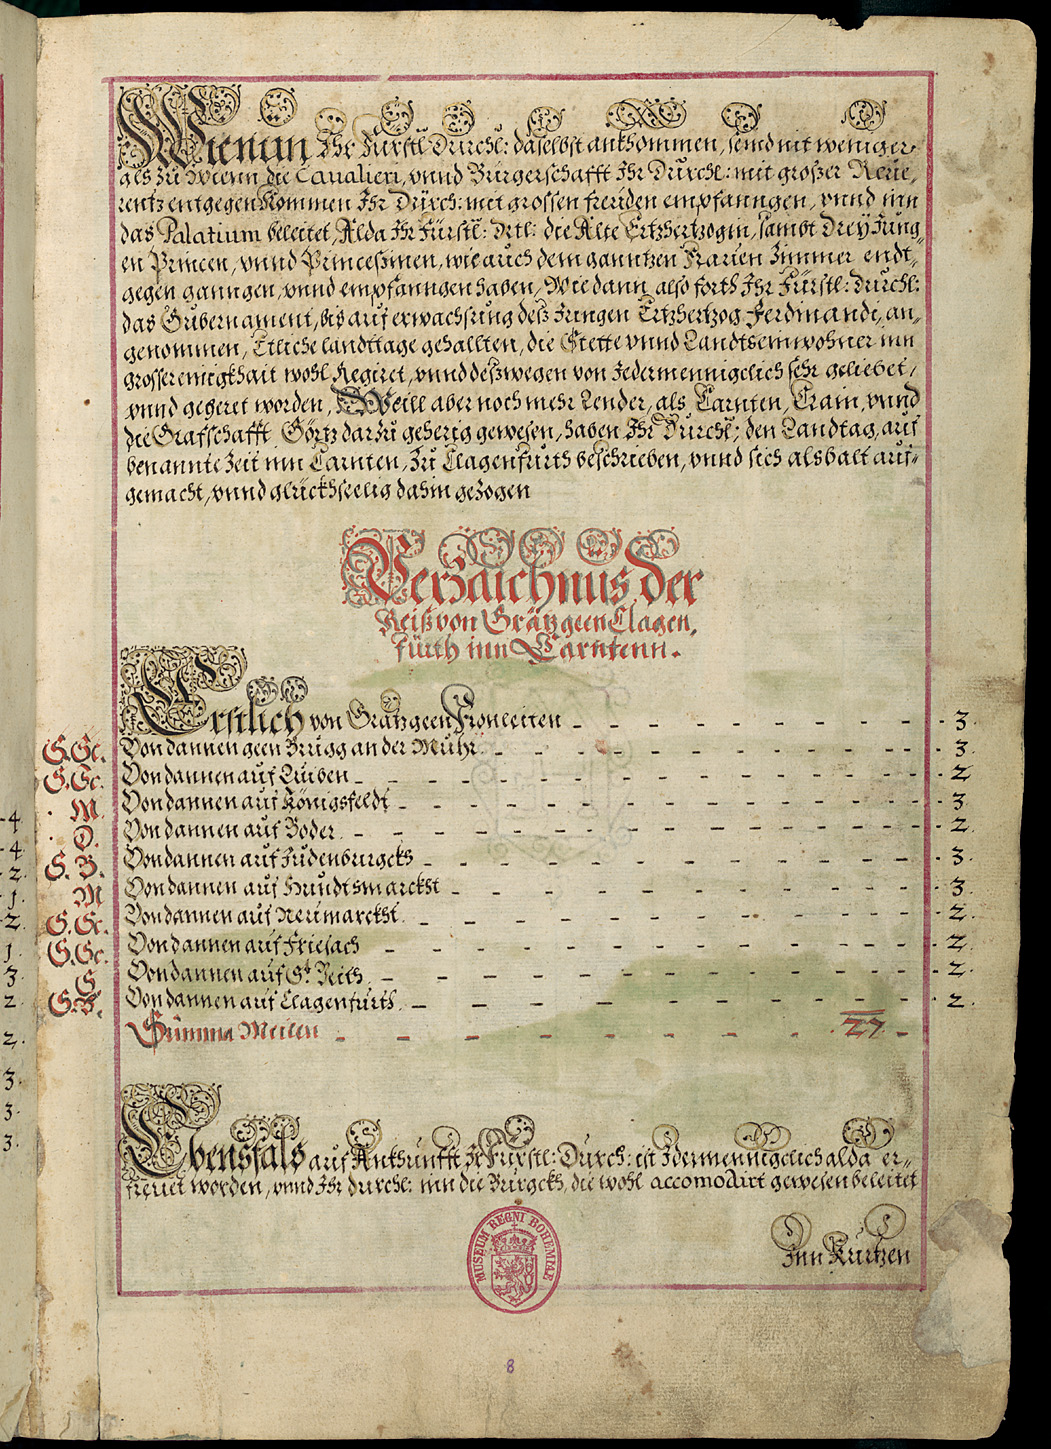 Wie nun Ihr Fürstl: Durchl: daselbst ankhommen, seind nit weniger
als zu Wienn die Cavalieri, unnd Bürgerschafft Ihr Durchl: mit großer Reve„
rentz entgegen kommen Ihr Dürch: mit grossen freüden empfanngen, unnd inn
das Palatium beleitet, Alda Ihr Fürstl: Drtl: die Alte Ertzhertzogin, sambt Drey Jung„
en Princen, unnd Princessinen, wie auch dem ganntzen Frauen Zimmer endt„
gegen ganngen, unnd empfanngen haben, Wie dann also forth Ihr Fürstl: Durchl:
das Gubernament, bis auf erwachsung deß Jungen Ertzhertzog Ferdinandi, an„
genommen, Etliche landttage gehallten, die Stette unnd Landtseinwohner inn
grosser einigkhait wohl Regiret, unnd deßwegen von Jedermennigclich sehr geliebet,
unnd geheret worden, Weill aber noch mehr Lender, als Carnten, Crain, unnd
die Grafschafft Görtz darzu geherig gewesen, haben Ihr Durchl; den Landtag, auf
benannte Zeit inn Carnten, zu Clagenfurth beschrieben, unnd sich alsbalt auf„
gemacht, unnd glückhseelig dahin gezogen
Verzaichnus der
Reiß von Grätz geen Clagen„
fürth inn Carntenn.
Erstlich von Grätz geen Fronleiten 3.
G.Gc. Von dannen geen Brugg an der Muhr 3.
G.Gc. Von dannen auf Luiben 2.
M. Von dannen auf Königsfeldt 3.
D. Von dannen auf Boder 2.
G.B. Von dannen auf Judenburgckh 3.
M Von dannen auf Hundtsmarckht 3.
G.Gc. Von dannen auf Neumarckht 2.
G.Gc. Von dannen auf Friesach 2.
G. Von dannen auf St. Veith 2.
G.B. Von dannen auf Clagenfurth 2.
Summa Meilen 27
Ebensfals auf Ankhunfft Ir Fürstl: Dürch: ist Idermennigclich alda er„
freuet worden, unnd Ihr durchl: inn die Burgckh, die wohl accomodirt gewesen beleitet
Inn Kurtzen
MUSEUM REGNI BOHEMIAE
8
4
4.
2.
1.
2.
1.
3
2
2.
3.
3.
3.